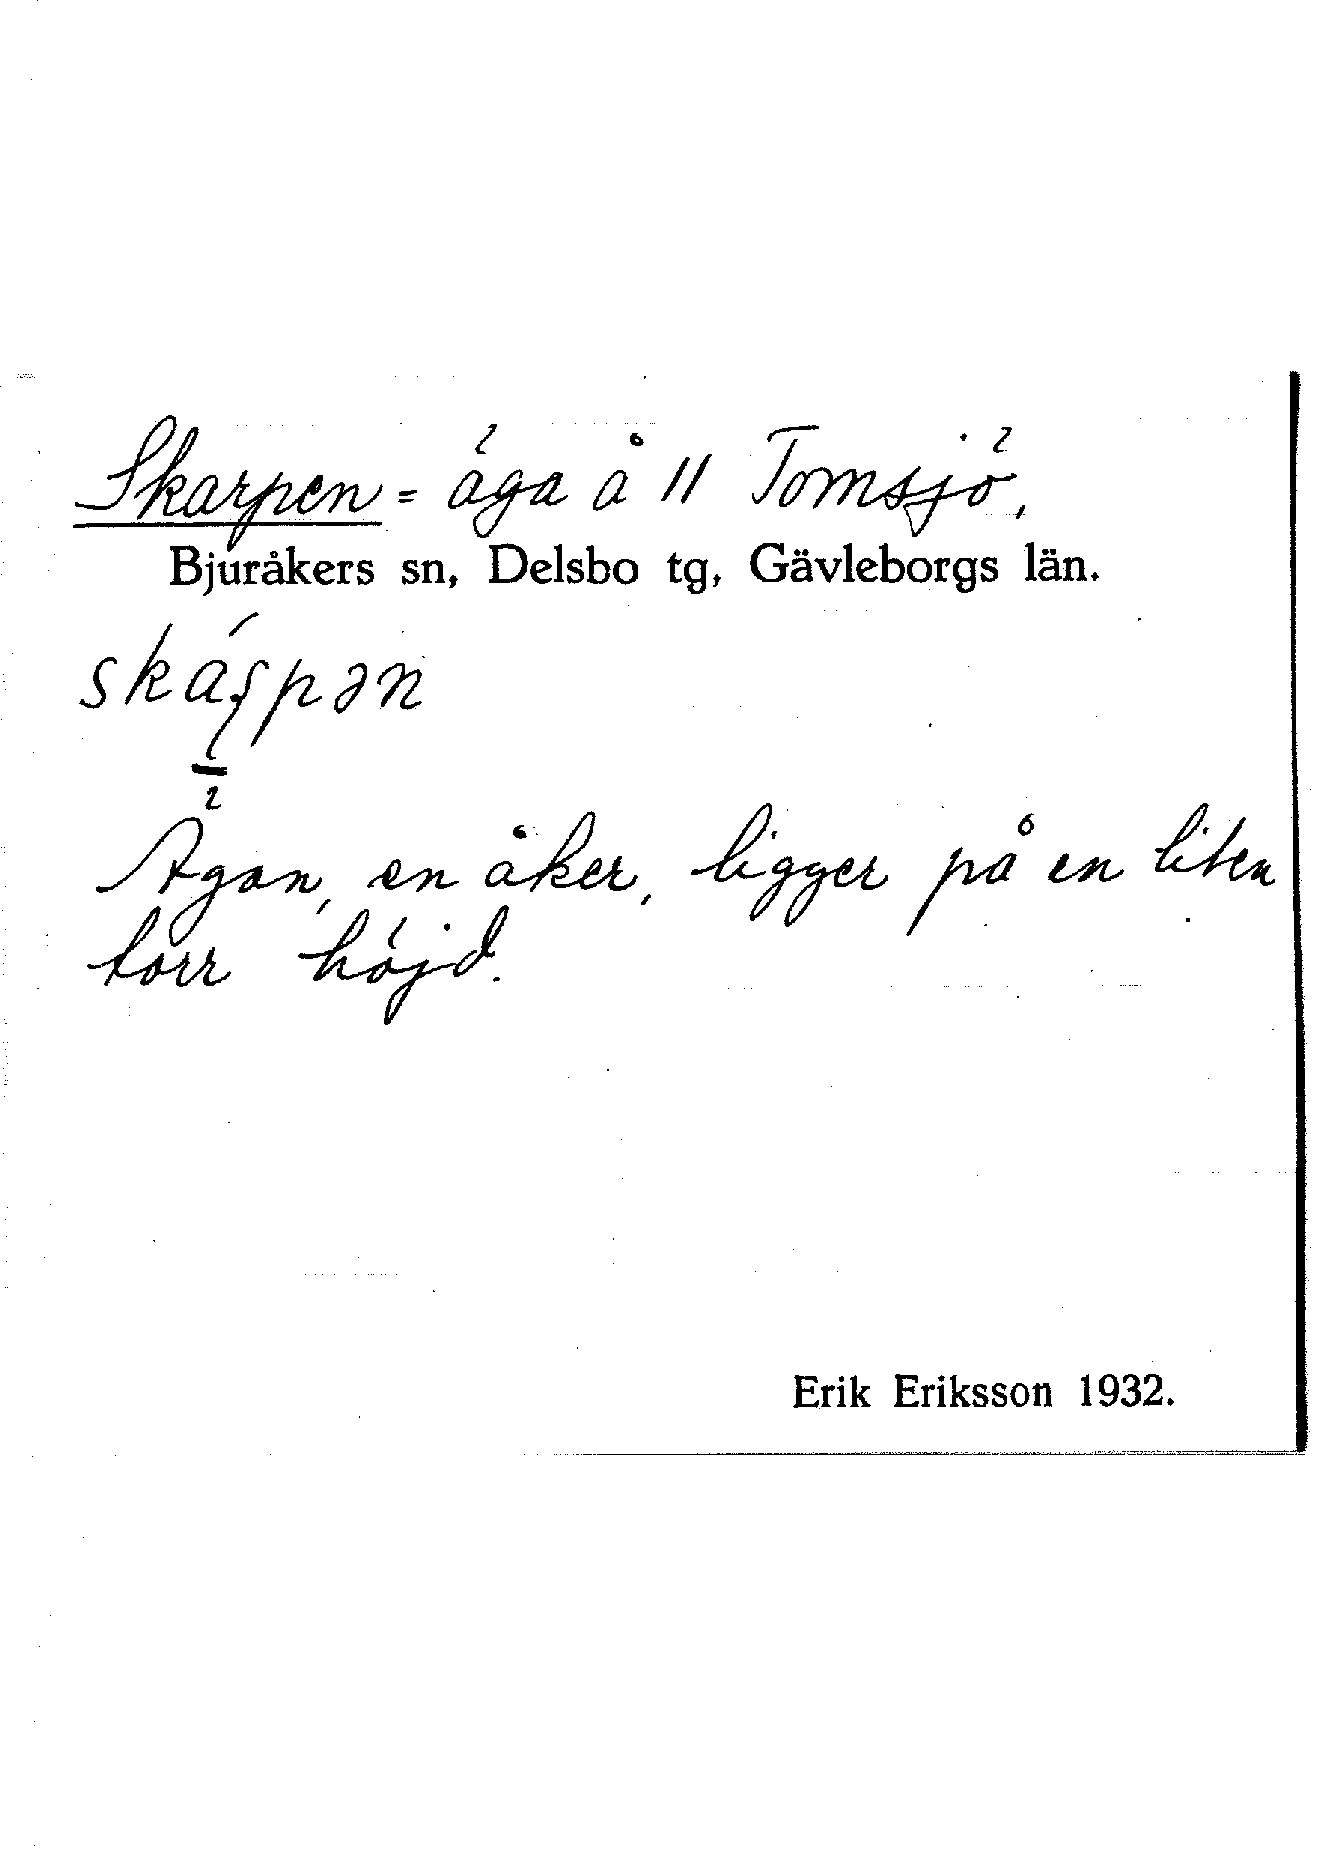 Skarpen = äga å 11 Tomsjö,
Bjuråkers sn, Delsbo tg, Gävleborgs län.
Ägan, en åker, ligger på en liten
torr höjd.
Erik Eriksson 1932.